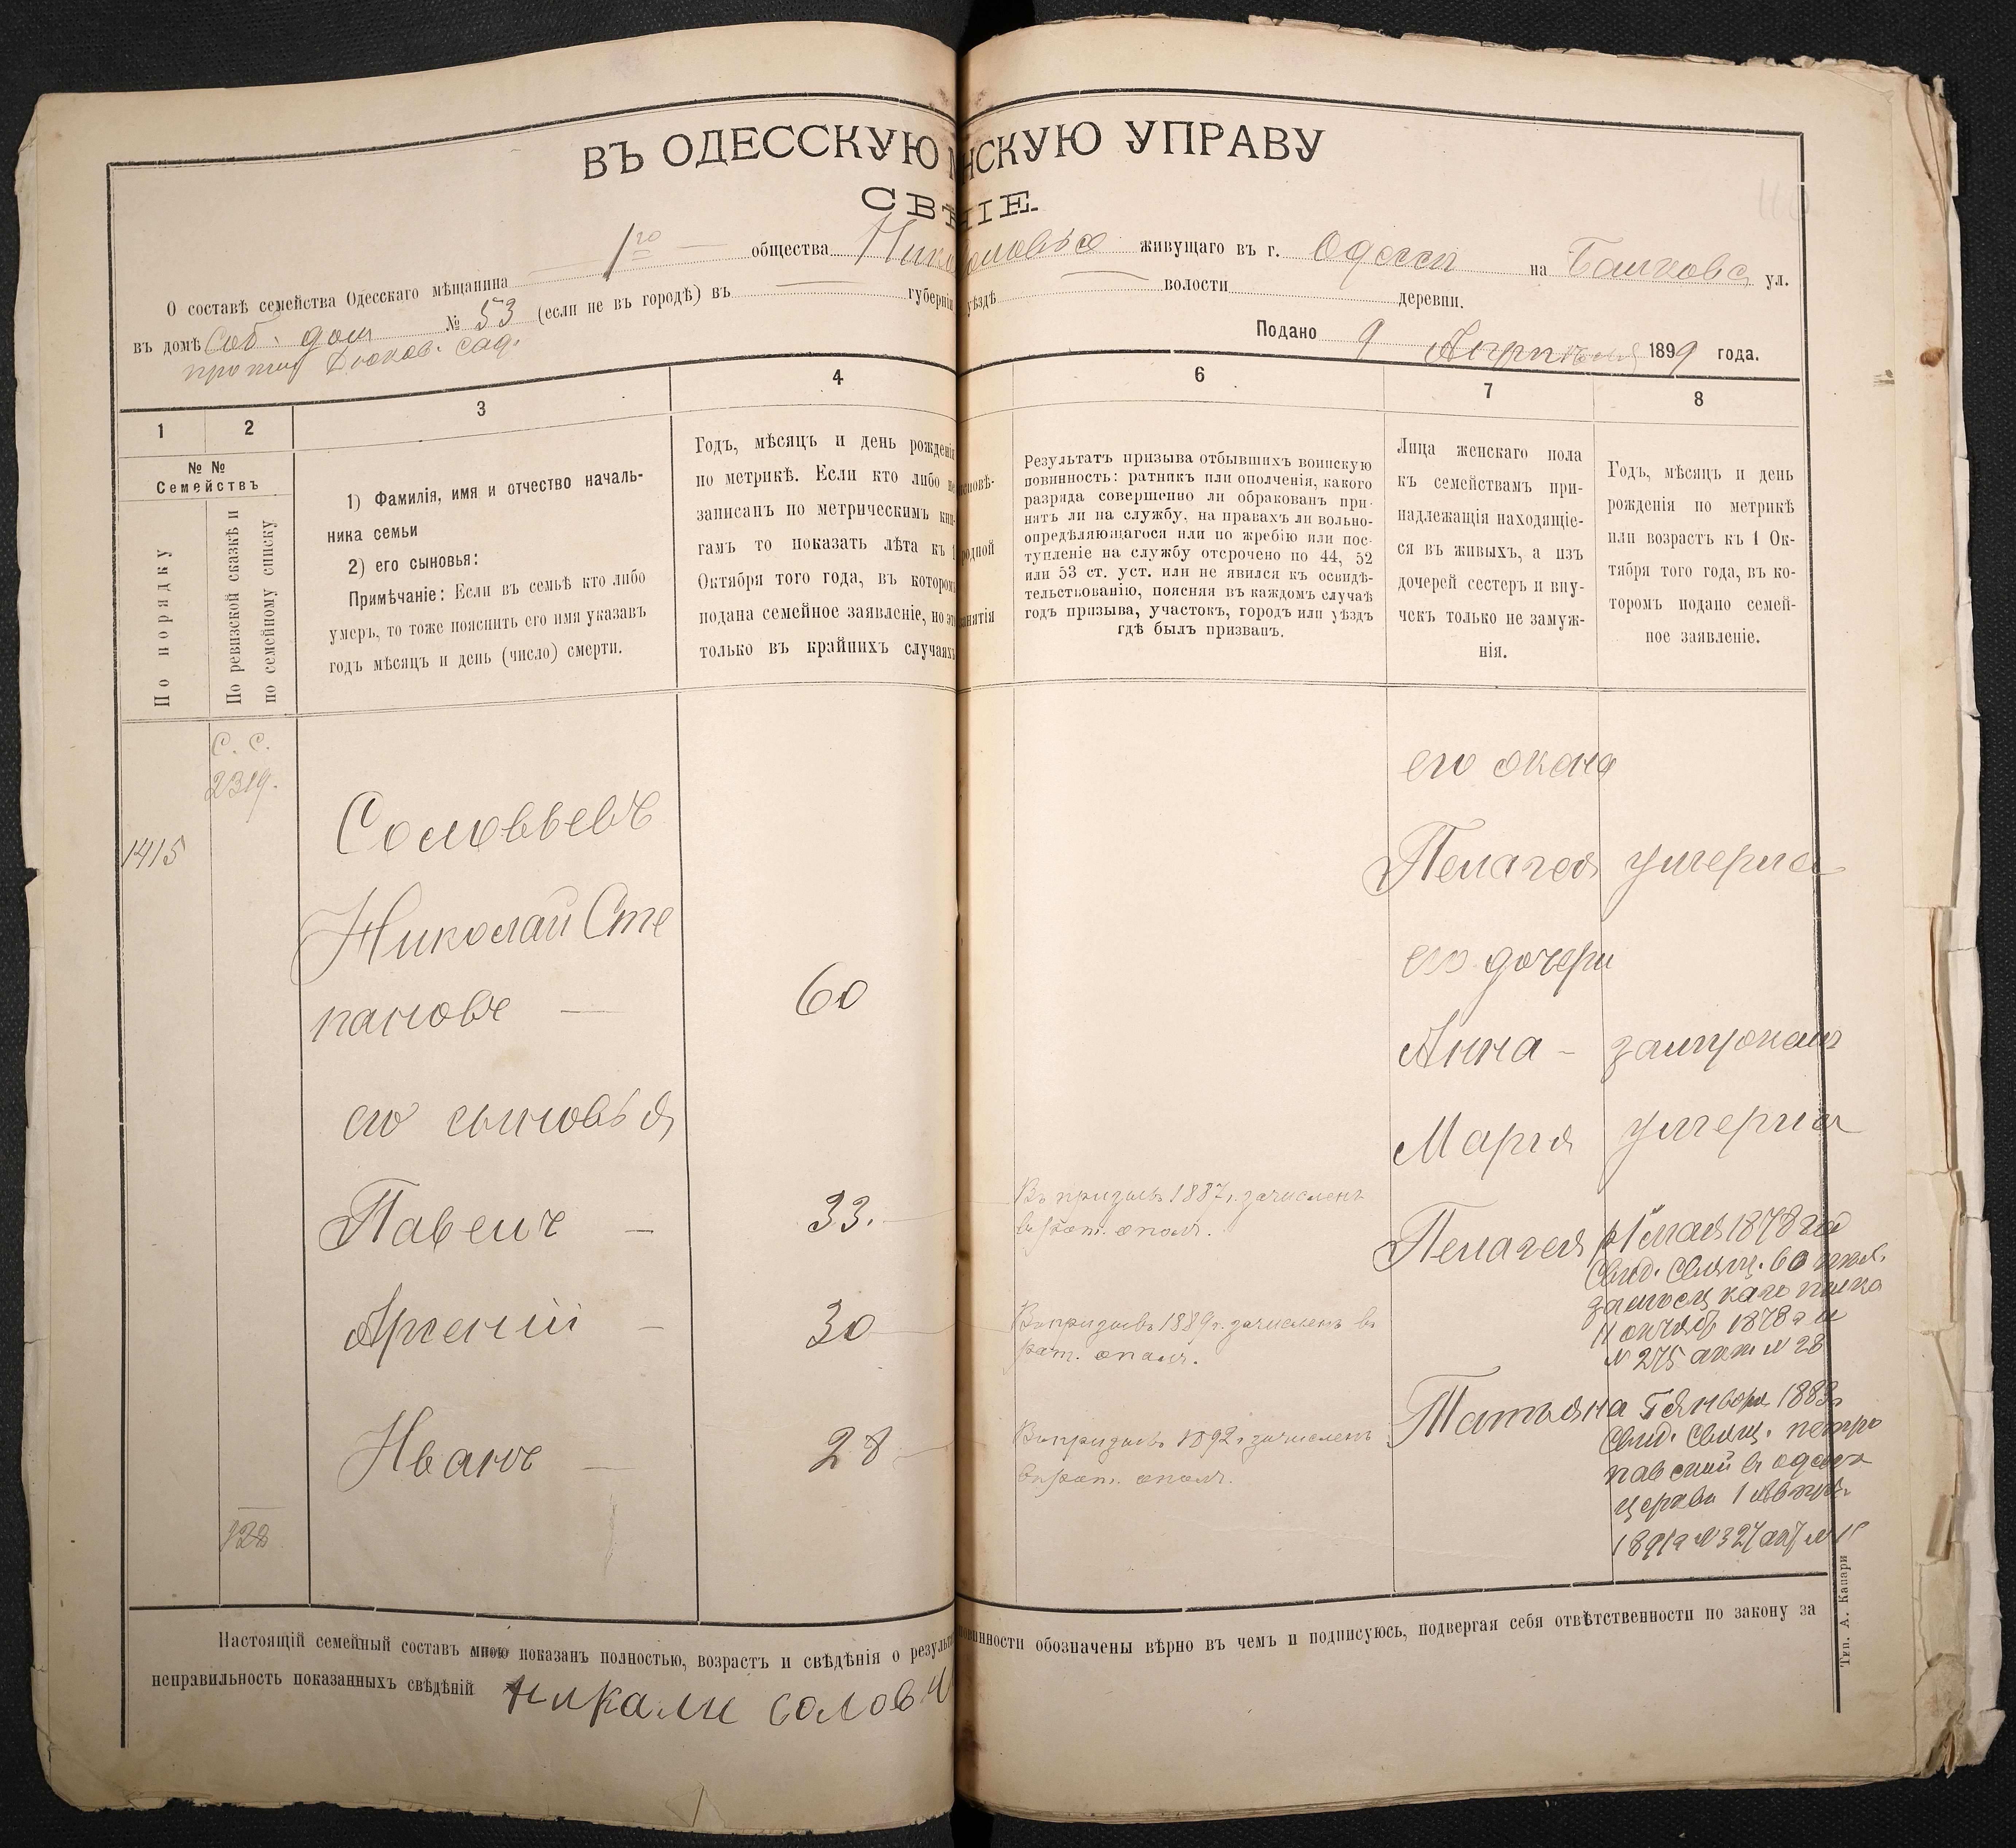 ВЪ ОДЕССКУЮ НСКУЮ УПРАВУ
СВѢ НІЕ.
О составѣ семейства Одесскаго мѣщанина 1го общества живущаго въ г. Одессы на Балковс. ул.
въ домѣ Соб. дом № 53 (если не въ городѣ) въ губерніи уѣздѣ волости деревни.
против Дюков. сад.
Подано 9 Апрѣля 1899 года.
1
2
3
4
6
7
8
№ №
Семействъ
По порядку
По ревизской сказкѣ и
по семейному списку
1) Фамилія, имя и отчество началь-
ника семьи
2) его сыновья:
Примѣчаніе: Если въ семьѣ кто либо
умеръ, то тоже пояснить его имя указавъ
годъ мѣсяцъ и день (число) смерти.
Годъ, мѣсяцъ и день рожденія
по метрикѣ. Если кто либо не
записанъ по метрическимъ кни-
гамъ то показать лѣта къ 1
Октября того года, въ которомъ
подана семейное заявленіе, но это
только въ крайнихъ случаяхъ
Результатъ призыва отбывшихъ воинскую
повинность: ратникъ или ополченія, какого
разряда совершенно ли обракованъ при-
нятъ ли на службу, на правахъ ли вольно-
опредѣляющагося или по жребію или пос-
тупленіе на службу отсрочено по 44, 52
или 53 ст. уст. или не явился къ освидѣ-
тельствованію, поясняя въ каждомъ случаѣ
годъ призыва, участокъ, городъ или уѣздъ
гдѣ былъ призванъ.
Лица женскаго пола
къ семействамъ при-
надлежащія находящіе-
ся въ живыхъ, а изъ
дочерей сестеръ и вну-
чекъ только не замуж-
нія.
Годъ, мѣсяцъ и день
рожденія по метрикѣ
или возрастъ къ 1 Ок-
тября того года, въ ко-
торомъ подано семей-
ное заявленіе.
С. С.
2319.
1415
Соловьевъ
Николай Сте
пановъ — 60
его сыновья
Павелъ — 33.
Въ призывъ 1887 г. зачисленъ
в рат. ополч.
Арсеній — 30
В призывъ 1889 г. зачисленъ в
рат. ополч.
Иванъ — 28
В призывъ 1892 г. зачисленъ
в рат. ополч.
128
его жена
Пелагея умерла
его дочери
Анна – замужем
Мария умерла
Пелагея р 1 мая 1878 год
Свид. Свящ. 60 пех.
замосцкаго полка
11 октяб 1878 г
№ 275 акт № 28
Татьяна Января 1883
Свид. Свящ. петро
павской в одесск
церкви 1
1891 г № 327 акт №
Настоящій семейный составъ мною показан полностью, возрастъ и свѣдѣнія о результ повинности обозначены вѣрно въ чемъ и подписуюсь, подвергая себя отвѣтственности по закону за
неправильность показанныхъ свѣдѣній Никали солов
Тип. А. Капари